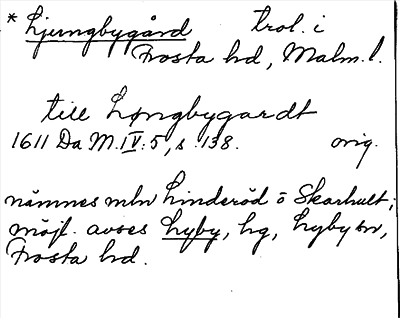 * Ljungbygård trol. i
Frosta hd, Malm. l.
till Løngbygardt
1611 Da M. IV: 5, s. 138. orig.
nämnes mln Linderöd o Skarhult;
möjl. avses Hyby, hg, Hyby sn,
Frosta hd.